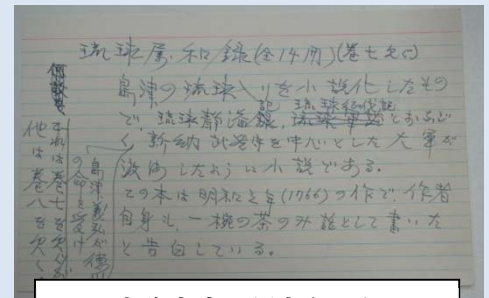 琉球属和録(全14冊)(巻七欠)
島津の琉球入りを小説化したもの
で琉球静謐記、琉球征伐記とおなじ
く新納武蔵守を中心とした大軍が
渡海したという小説である。
この本は明和三年(1766)の作で、作者
自身も、一椀の茶のみ話として書いた
と告白している。
島津義弘が徳川
の命を受け
これは巻七を欠くが
他は巻八を欠く